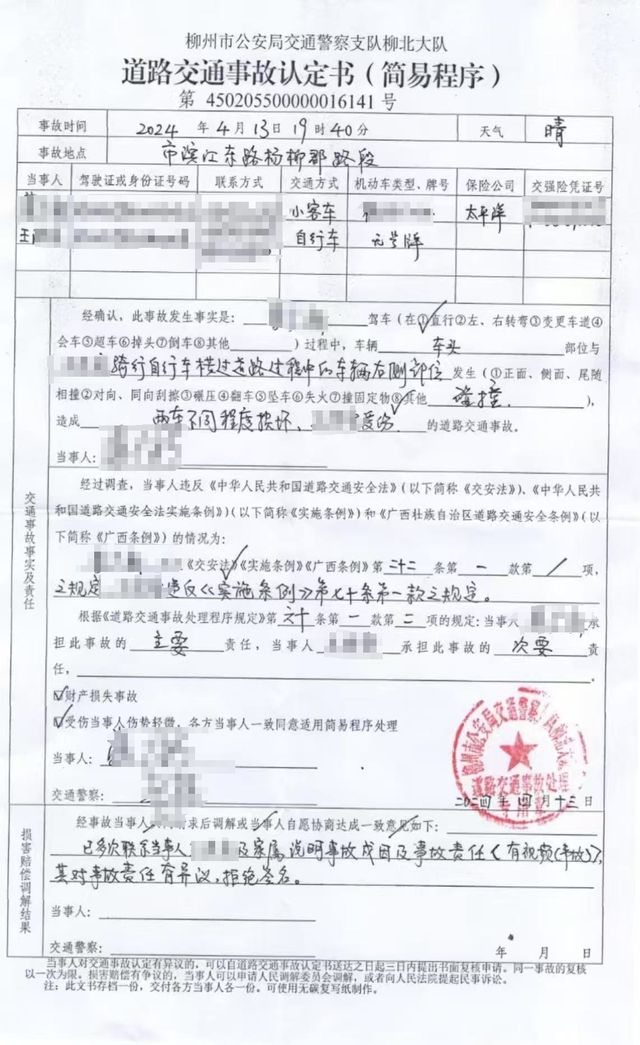 柳州市公安局交通警察支队柳北大队
道路交通事故认定书（简易程序）
第 450205500000016141 号
事故时间 2024 年 4 月 13 日 19 时 40 分 天气 晴
事故地点 市滨江东路杨柳郡路段
当事人 驾驶证或身份证号码 联系方式 交通方式 机动车类型、牌号 保险公司 交强险凭证号
小客车 太平洋
王 自行车 无号牌
交通事故事实及责任
经确认，此事故发生事实是： 驾车（在①直行②左、右转弯③变更车道④
会车⑤超车⑥掉头⑦倒车⑧其他 ）过程中，车辆 车头 部位与
骑行自行车横过道路过程中的车辆右侧部位 发生（①正面、侧面、尾随
相撞②对向、同向刮擦③碾压④翻车⑤坠车⑥失火⑦撞固定物⑧其他 碰撞 ），
造成 两车不同程度损坏， 受伤 的道路交通事故。
当事人：
经过调查，当事人违反《中华人民共和国道路交通安全法》（以下简称《交安法》）、《中华人民共
和国道路交通安全法实施条例》）（以下简称《实施条例》）和《广西壮族自治区道路交通安全条例》（以
下简称《广西条例》）的情况为：
《交安法》《实施条例》《广西条例》第 二十二 条第 一 款第 / 项，
之规定 违反《实施条例》第七十条第一款之规定。
根据《道路交通事故处理程序规定》第 六十 条第 一 款第 二 项的规定：当事人 承
担此事故的 主要 责任，当事人 承担此事故的 次要 责
任，
☑财产损失事故
☑受伤当事人伤势轻微，各方当事人一致同意适用简易程序处理
当事人：
交通警察： 二〇二四年 四 月 十三 日
柳州市公安局交通警察支队柳北大队
道路交通事故处理
专用章
损害赔偿调解结果
经事故当事人 请求后调解或当事人自愿协商达成一致意见如下：
已多次联系当事人 及家属，说明事故成因及事故责任（有视频（事故）），
其对事故责任有异议，拒绝签名。
当事人：
交通警察： 年 月 日
当事人对交通事故认定有异议的，可以自道路交通事故认定书送达之日起三日内提出书面复核申请。同一事故的复核
以一次为限。损害赔偿有争议的，当事人可以申请人民调解委员会调解，或者向人民法院提起民事诉讼。
注：此文书存档一份，交付各方当事人各一份。可使用无碳复写纸制作。